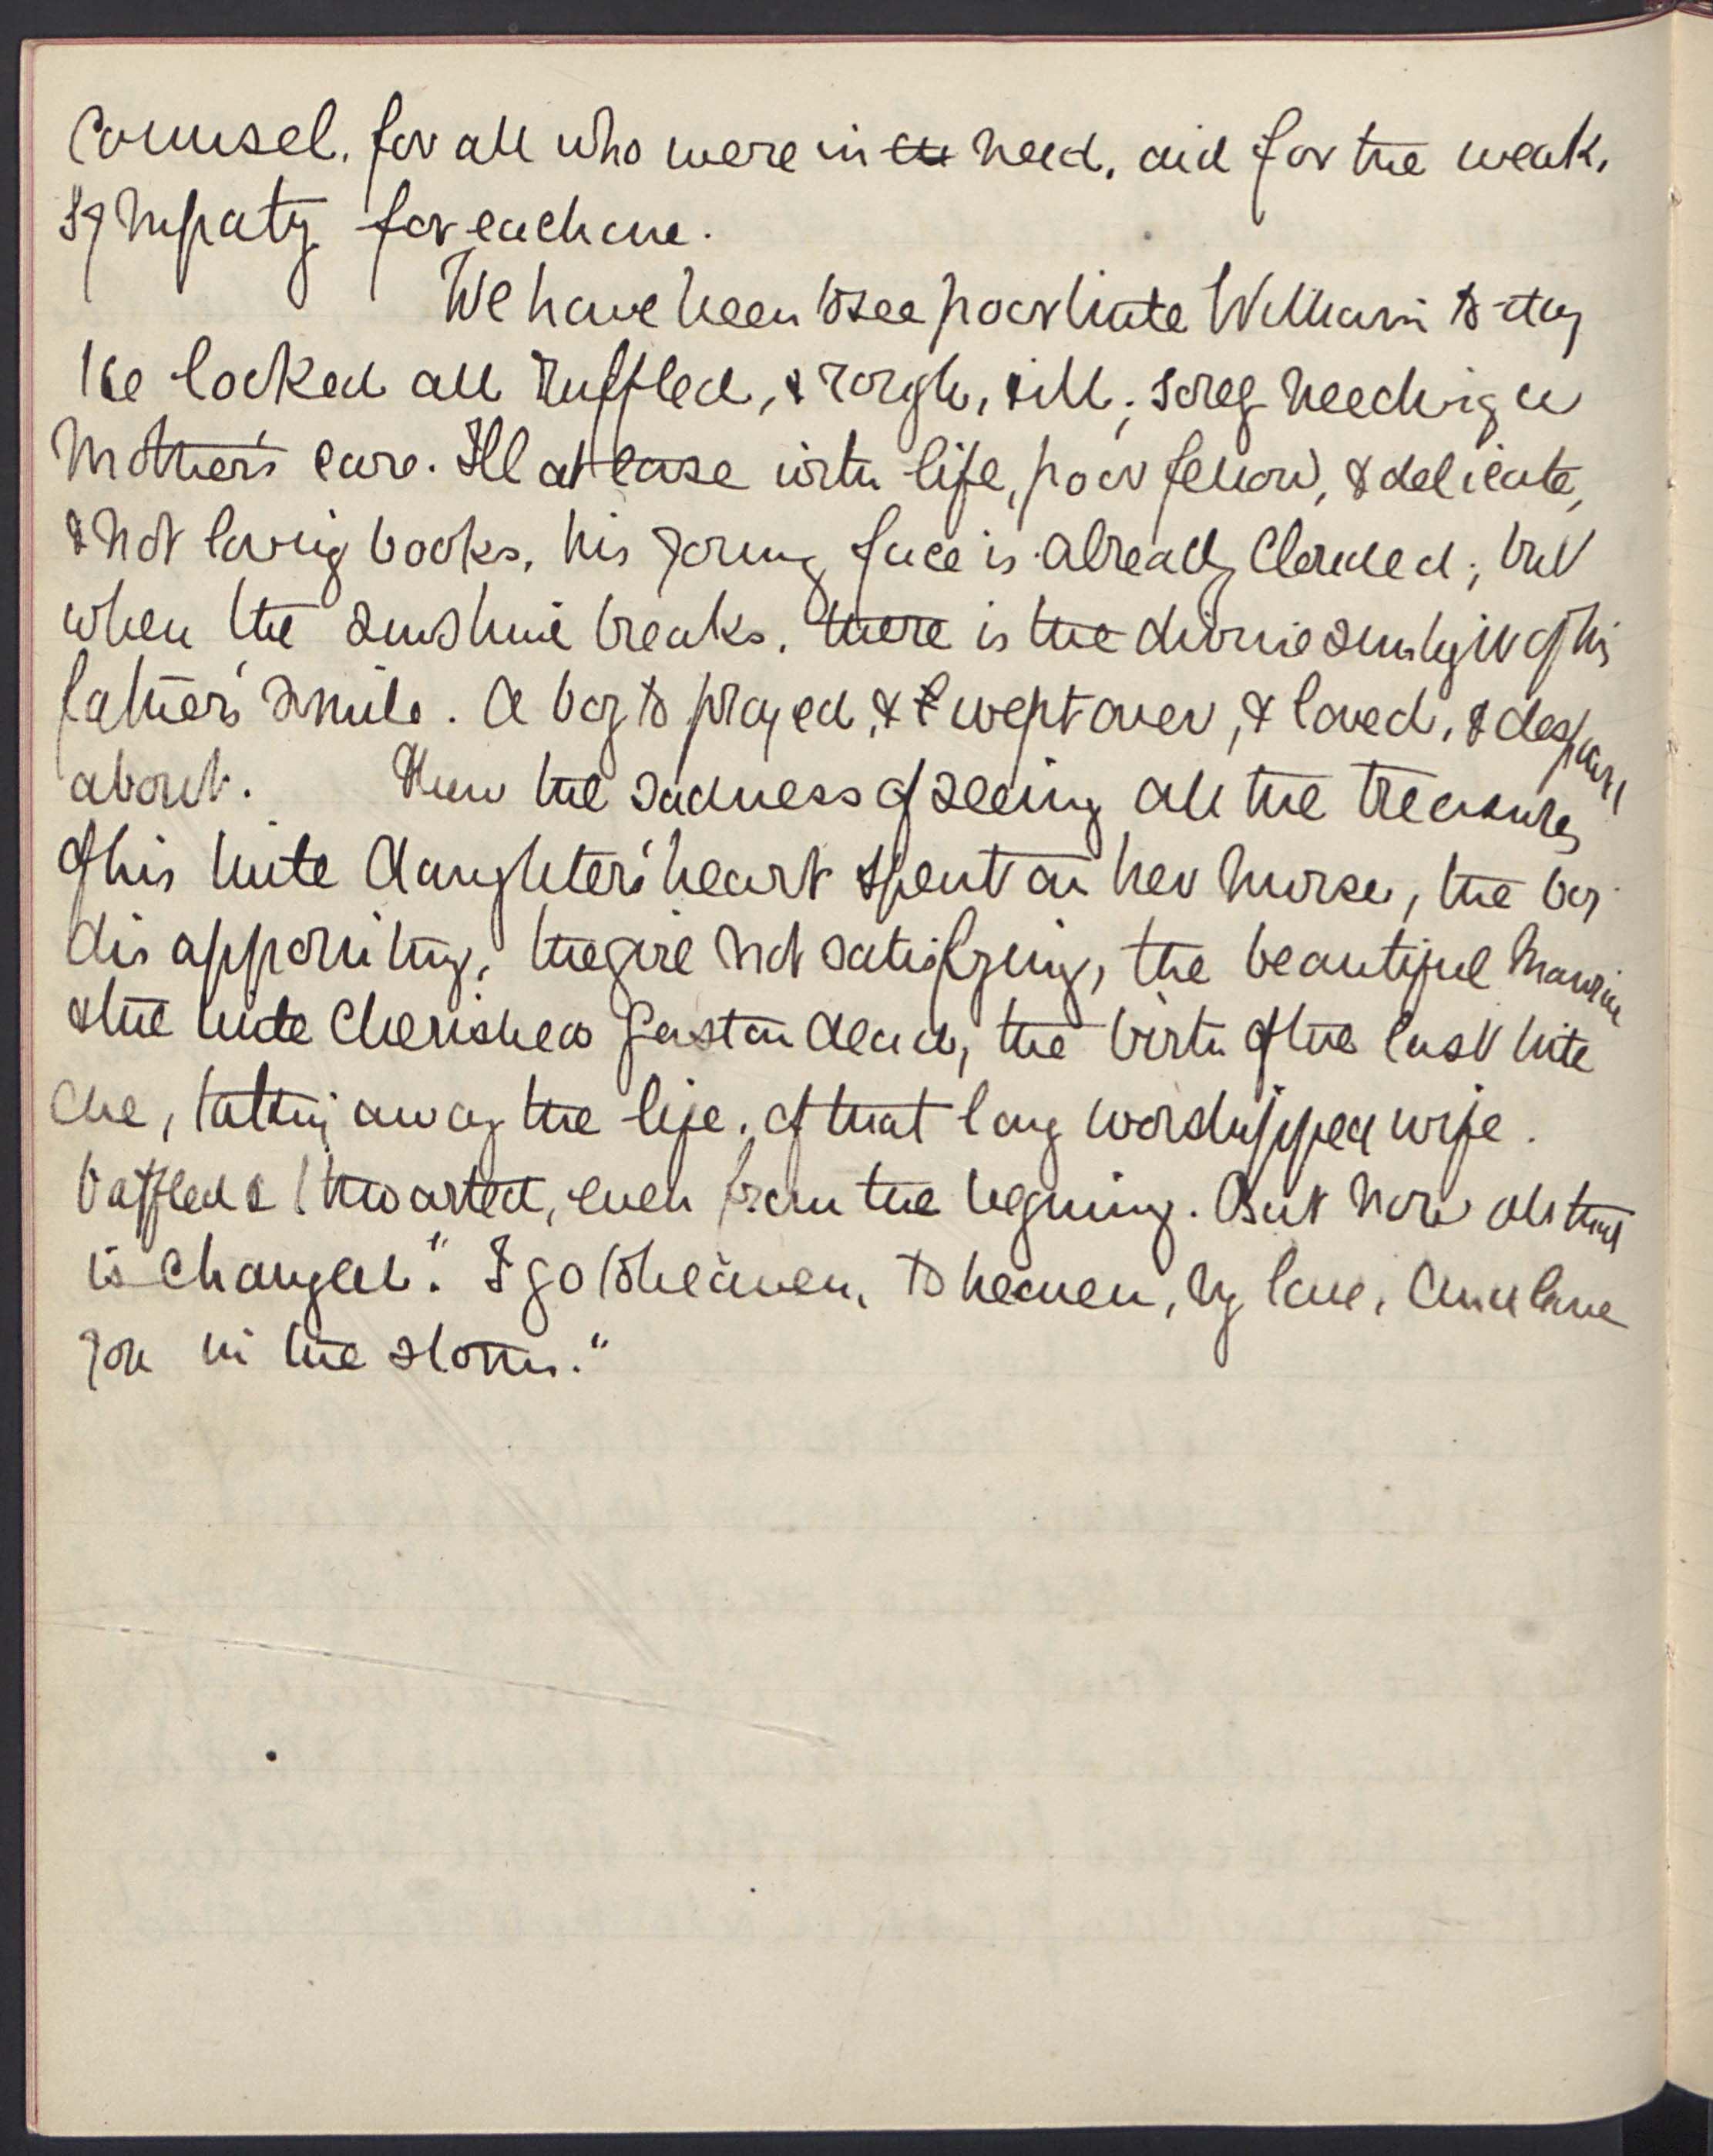 Counsel. for all who were in need, aid for the weak,
sympaty for each one.
We have been to see poor little William to-day
He looked all ruffled, & rough, & ill; sorely needing a
Mother's care. Ill at ease with life, poor fellow, & delicate,
& not loving books, his young face is already clouded; but
when the sunshine breaks, there is the divine sunlight of his
father's smile. A boy to prayed, & wept over, & loved, & despair
about. Then the sadness of seeing all the treasures
of his little daughter's heart spent on her nurse, the boy
disappointing, the girl not satisfying, the beautiful Maurice
& the little cherished Gaston dead, the birth of the last little
one, taking away the life, of that long worshipped wife.
Baffled & thwarted, even from the begining. But now all that
is changed. "I go to heaven, to heaven, my love, and leave
you in the storm."